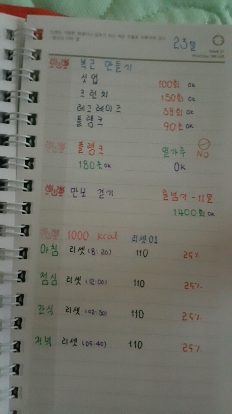 23일
복근 만들기
싯업 100회 OK
크런치 150회 OK
레그레이즈 55회 OK
플랭크 90초 OK
플랭크 밀가루 NO
180초 OK OK
만보 걷기 줄넘기 - 11일
1400회 OK
1000 kcal 리셋 01
아침 리셋 110 25%
점심 리셋 (12:00) 110 25%
간식 리셋 110 25%
저녁 리셋 110 25%